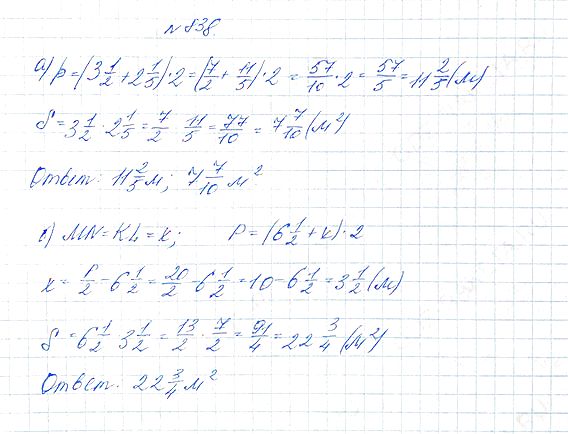 № 838.
а) P = (3 1/2 + 2 1/5) · 2 = (7/2 + 11/5) · 2 = 57/10 · 2 = 57/5 = 11 2/5 (м)
S = 3 1/2 · 2 1/5 = 7/2 · 11/5 = 77/10 = 7 7/10 (м²)
Ответ: 11 2/5 м; 7 7/10 м²
б) MN = KL = x; P = (6 1/2 + x) · 2
x = P/2 - 6 1/2 = 20/2 - 6 1/2 = 10 - 6 1/2 = 3 1/2 (м)
S = 6 1/2 · 3 1/2 = 13/2 · 7/2 = 91/4 = 22 3/4 (м²)
Ответ: 22 3/4 м²